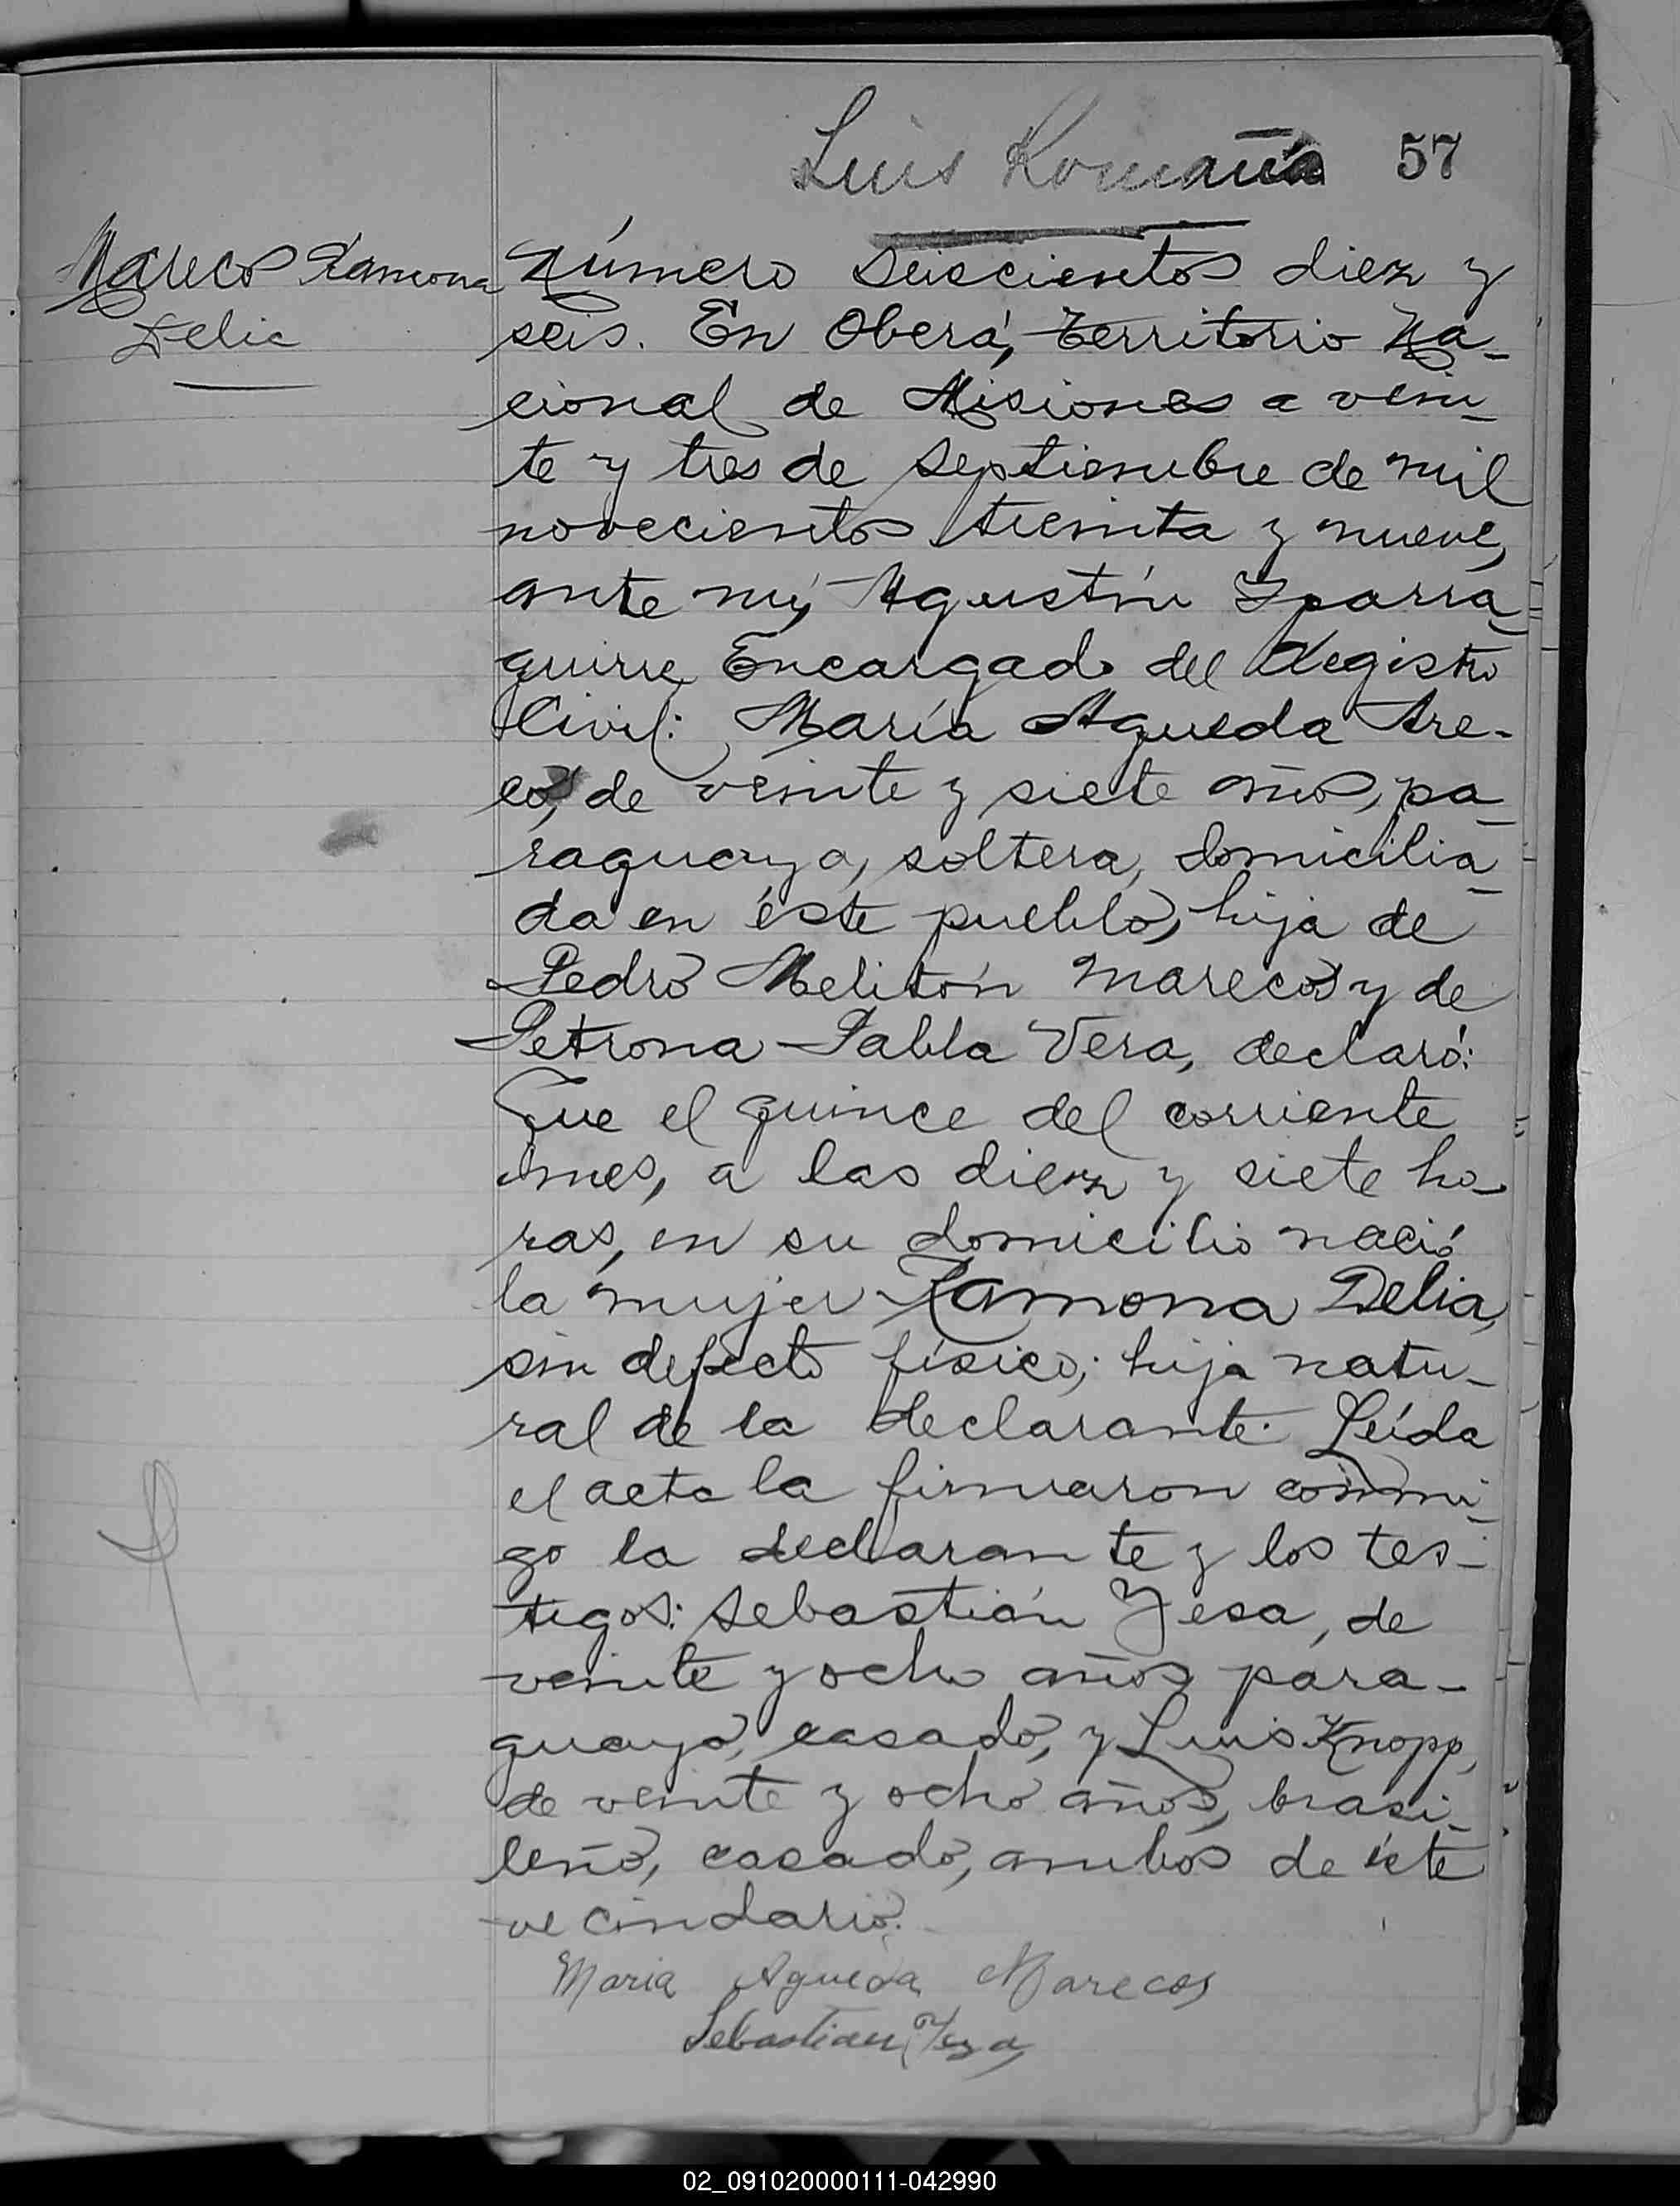 Luis Romaña 57
Mareco Ramona
Delia
Número seiscientos diez y
seis. En Oberá, Territorio Na-
cional de Misiones a vein-
te y tres de septiembre de mil
novecientos treinta y nueve,
ante mí, Agustín Yparra-
guirre Encargado del Registro
Civil: María Agueda Are-
co, de veinte y siete años, pa-
raguaya, soltera, domicilia-
da en éste pueblo, hija de
Pedro Melitón Marecos y de
Petrona Pabla Vera, declaró:
Que el quince del corriente
mes, a las diez y siete ho-
ras, en su domicilio nació
la mujer Ramona Delia,
sin defecto físico; hija natu-
ral de la declarante. Leída
el acta la firmaron conmi-
go la declarante y los tes-
tigos: Sebastián Yesa, de
veinte y ocho años para-
guayo, casado, y Luis Knopp,
de veinte y ocho años, brasi-
leño, casado, ambos de éste
vecindario.
Maria Agueda Marecos
Sebastian Yeza
02_091020000111-042990